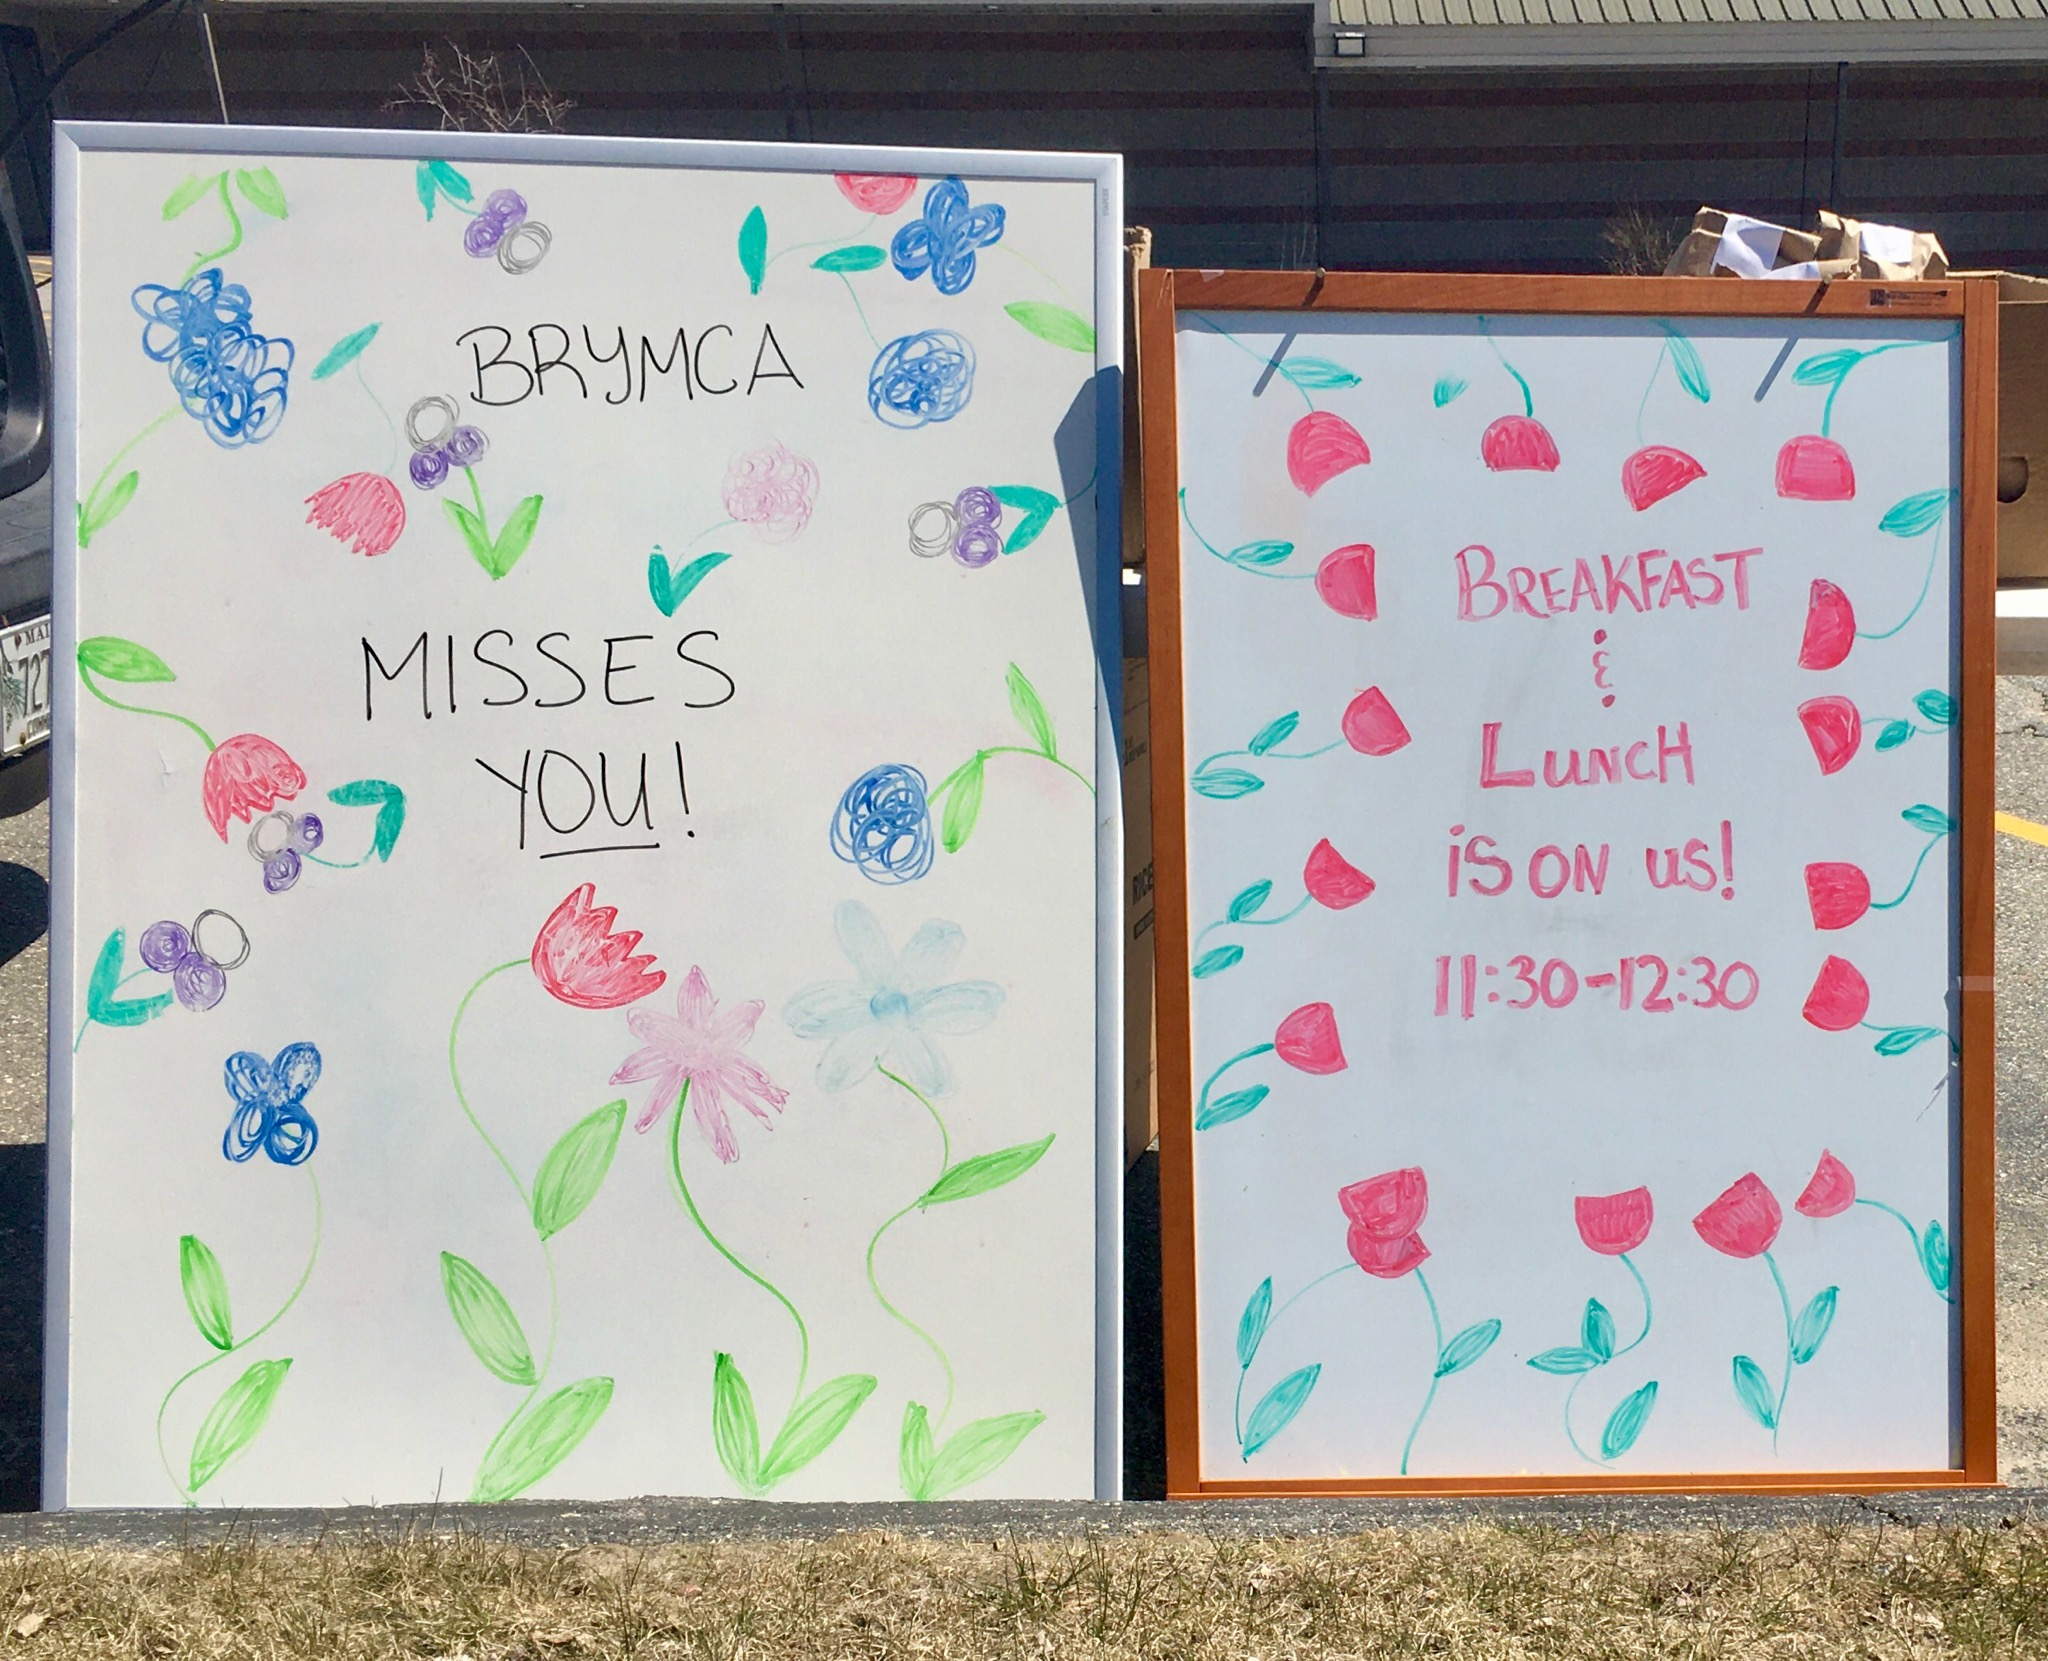 BRYMCA
MISSES
YOU!
BREAKFAST
&
LUNCH
iS ON US!
11:30-12:30
MAI
727